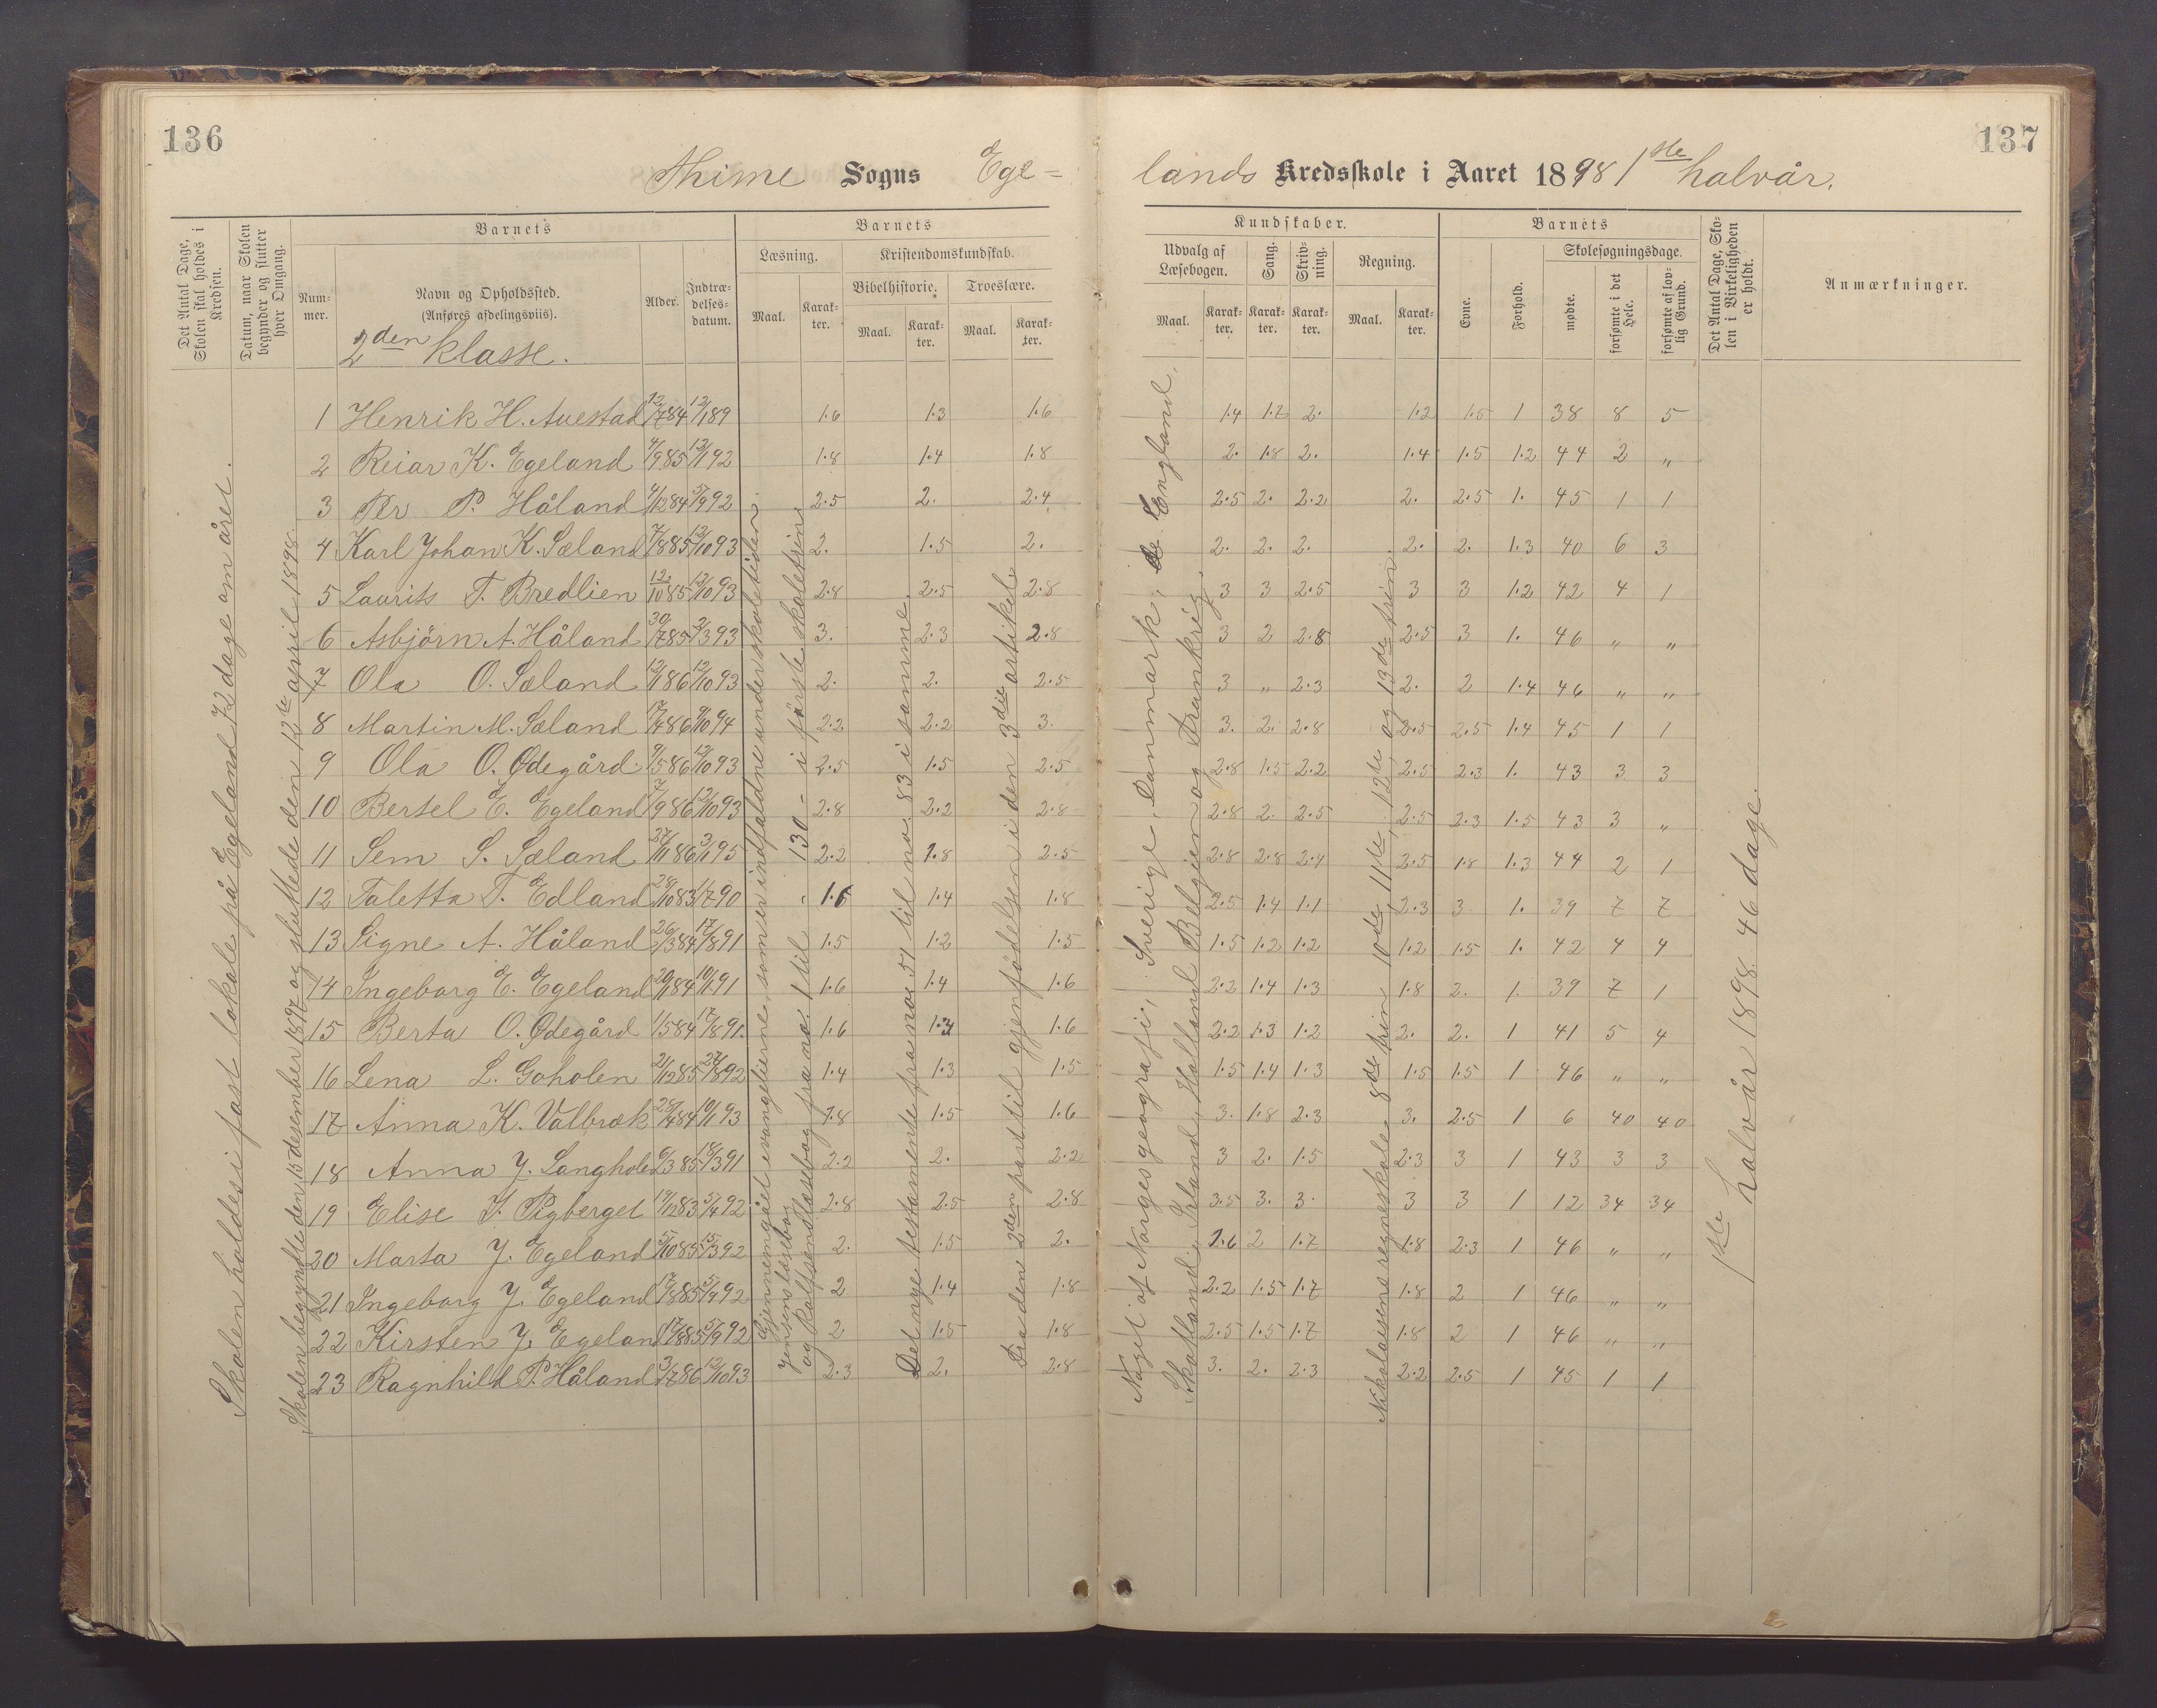 136
137
Thime Sogns Ege=
lands Kredsskole i Aaret 1898 1ste halvår.
Det Antal Dage, Skolen skal holdes i Kredsen.
Datum, naar Skolen begynder og slutter hver Omgang.
Barnets
Nummer.
Navn og Opholdssted.
(Anføres afdelingsviis).
2den klasse.
Alder.
Indtrædelsesdatum.
Barnets
Læsning.
Maal.
Karakter.
Kristendomskundskab.
Bibelhistorie.
Maal.
Karakter.
Troeslære.
Maal.
Karakter.
Kundskaber.
Udvalg af Læsebogen.
Maal.
Karakter.
Sang.
Karakter.
Skrivning.
Karakter.
Regning.
Maal.
Karakter.
Barnets
Evne.
Forhold.
Skolesøgningsdage.
mødte.
forsømte i det Hele.
forsømte af lovlig Grund.
Det Antal Dage, Skolen i Virkeligheden er holdt.
Anmærkninger.
Skolen holdes i fast lokale på Egeland 72 dage om året.
Skolen begyndte den 15 desember 1897 og sluttede den 12te april 1898.
Gjennemgået evangelierne, som er indfaldne under skoletiden.
Jensens læsebog
og Rolfsens læsebog fra no. 1 til 130 - i første skoletrin
Det nye testamente fra no. 51 til no. 83 i samme.
Fra den 2den part til gjenfødelsen i den 3die artikel.
Noget af Norges geografi; Sverige, Danmark, England,
Skotland, Irland, Holland Belgien og Frankrig.
Nikolaisens regneskole 8de trin 10de, 11te, 12te og 13de trin
1ste halvår 1898. 46 dage.
1 Henrik H. Auestad 12/7 84 12/1 89 1.6 1.3 1.6 1.4 1.7 2. 1.2 1.5 1 38 8 5
2 Reiar K. Egeland 4/9 85 12/1 92 1.8 1.4 1.8 2. 1.8 2. 1.4 1.5 1.2 44 2 "
3 Per P. Håland 4/12 84 5/9 92 2.5 2. 2.4 2.5 2. 2.2 2. 2.5 1. 45 1 1
4 Karl Johan K. Sæland 7/8 85 12/10 93 2. 1.5 2. 2. 2. 2. 2. 2. 1.3 40 6 3
5 Laurits T. Bredlien 12/10 85 12/10 93 2.8 2.5 2.8 3 3 2.5 3 3 1.2 42 4 1
6 Asbjörn A. Håland 30/7 85 2/3 93 3. 2.3 2.8 3 2 2.8 2.5 3 1. 46 " "
7 Ola O. Sæland 12/1 86 12/10 93 2. 2. 2.5 3 " 2.3 2. 2 1.4 46 " "
8 Martin M. Sæland 17/4 86 9/10 94 2.2 2.2 3. 3. 2. 2.8 2.5 2.5 1.4 45 1 1
9 Ola O. Ødegård. 9/5 86 12/10 93 2.5 1.5 2.5 2.8 1.5 2.2 2.5 2.3 1. 43 3 3
10 Bertel E. Egeland 7/9 86 12/10 93 2.8 2.2 2.8 2.8 2. 2.5 2.5 2.3 1.5 43 3 "
11 Sem S. Sæland 27/11 86 3/1 95 2.2 1.8 2.5 2.8 2.8 2.4 2.5 1.8 1.3 44 2 1
12 Taletta T. Edland 28/10 83 1/7 90 1.6 1.4 1.8 2.5 1.4 1.1 2.3 3 1. 39 7 7
13 Signe A. Håland 26/3 84 17/8 91 1.5 1.2 1.5 1.5 1.2 1.2 1.2 1.5 1. 42 4 4
14 Ingeborg E. Egeland 20/1 84 10/1 91 1.6 1.4 1.6 2.2 1.4 1.3 1.8 2. 1. 39 7 1
15 Berta O. Ødegård 1/5 84 17/8 91. 1.6 1.3 1.6 2.2 1.3 1.2 2. 2. 1 41 5 4
16 Lena L. Goholen 21/12 85 27/8 92 1.4 1.3 1.5 1.5 1.4 1.3 1.5 1.5 1 46 " "
17 Anna K. Valbræk 25/4 84 10/1 93 1.8 1.5 1.6 3. 1.8 2.3 3. 2.5 1 6 40 40
18 Anna J. Langholen 6/3 85 18/3 91 2.2 2. 2.2 3 2. 1.5 2.3 3 1 43 3 3
19 Elise J. Rygberget 19/12 83 5/4 92 2.8 2.5 2.8 3.5 3. 3. 3 3 1 12 34 34
20 Marta J. Egeland 5/10 85 15/3 92 2. 1.5 2. 2.6 2 1.7 1.8 2.3 1 46 " "
21 Ingeborg J. Egeland 17/8 85 5/9 92 2 1.4 1.8 2.2 1.5 1.7 1.8 2 1 46 " "
22 Kirsten J. Egeland 17/8 85 5/9 92 2 1.5 1.8 2.5 1.5 1.7 1.8 2 1 46 " "
23 Ragnhild P. Håland 3/7 86 12/10 93 2.3 2. 2.8 3. 2. 2.3 2.2 2.5 1 45 1 1